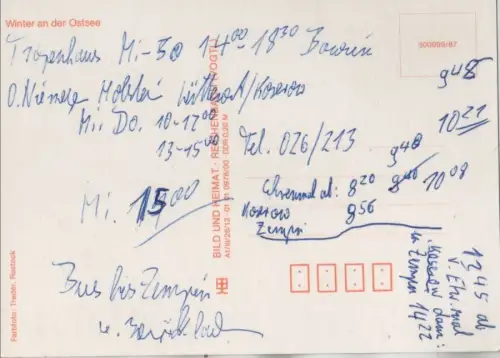 Winter an der Ostsee
Tropenhaus Mi-So 14 00 18 30
O. Niemeyer Holstein Lüttenort/Koserow
Mi. Do. 10-12 00
13-15 00
Mi. 15 00
Bus bis Zempin
u. zurück
Tel. 026/213
ab: 8 20
Koserow 8 56
Zempin
9 48
10 21
9 40
10 08
12 45 ab
v.
Koserow dann
in Zempin
14 22
300099/87
BILD UND HEIMAT · REICHENBACH (VOGTL)
A1/III/26/13 01 01 0978/00 DDR 0,20 M
Farbfoto: Treder, Rostock